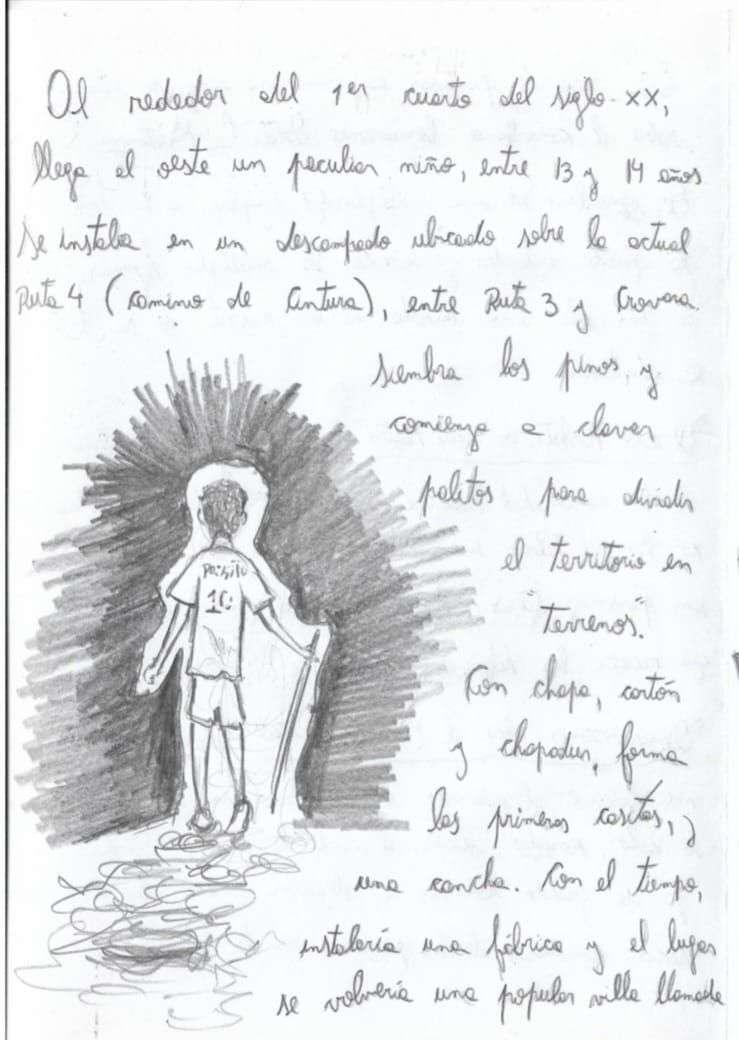 Al rededor del 1er cuarto del siglo XX,
llega al oeste un peculiar niño, entre 13 y 14 años
se instala en un descampado ubicado sobre la actual
Ruta 4 (Camino de Cintura), entre Ruta 3 y Crovara.
siembra los pinos, y
comienza a clavar
palitos para dividir
el territorio en
"terrenos".
Pa
10
Con chapa, cartón
y chapadur, forma
las primeras casitas, y
una cancha. Con el tiempo,
instalaría una fábrica y el lugar
se volvería una popular villa llamada